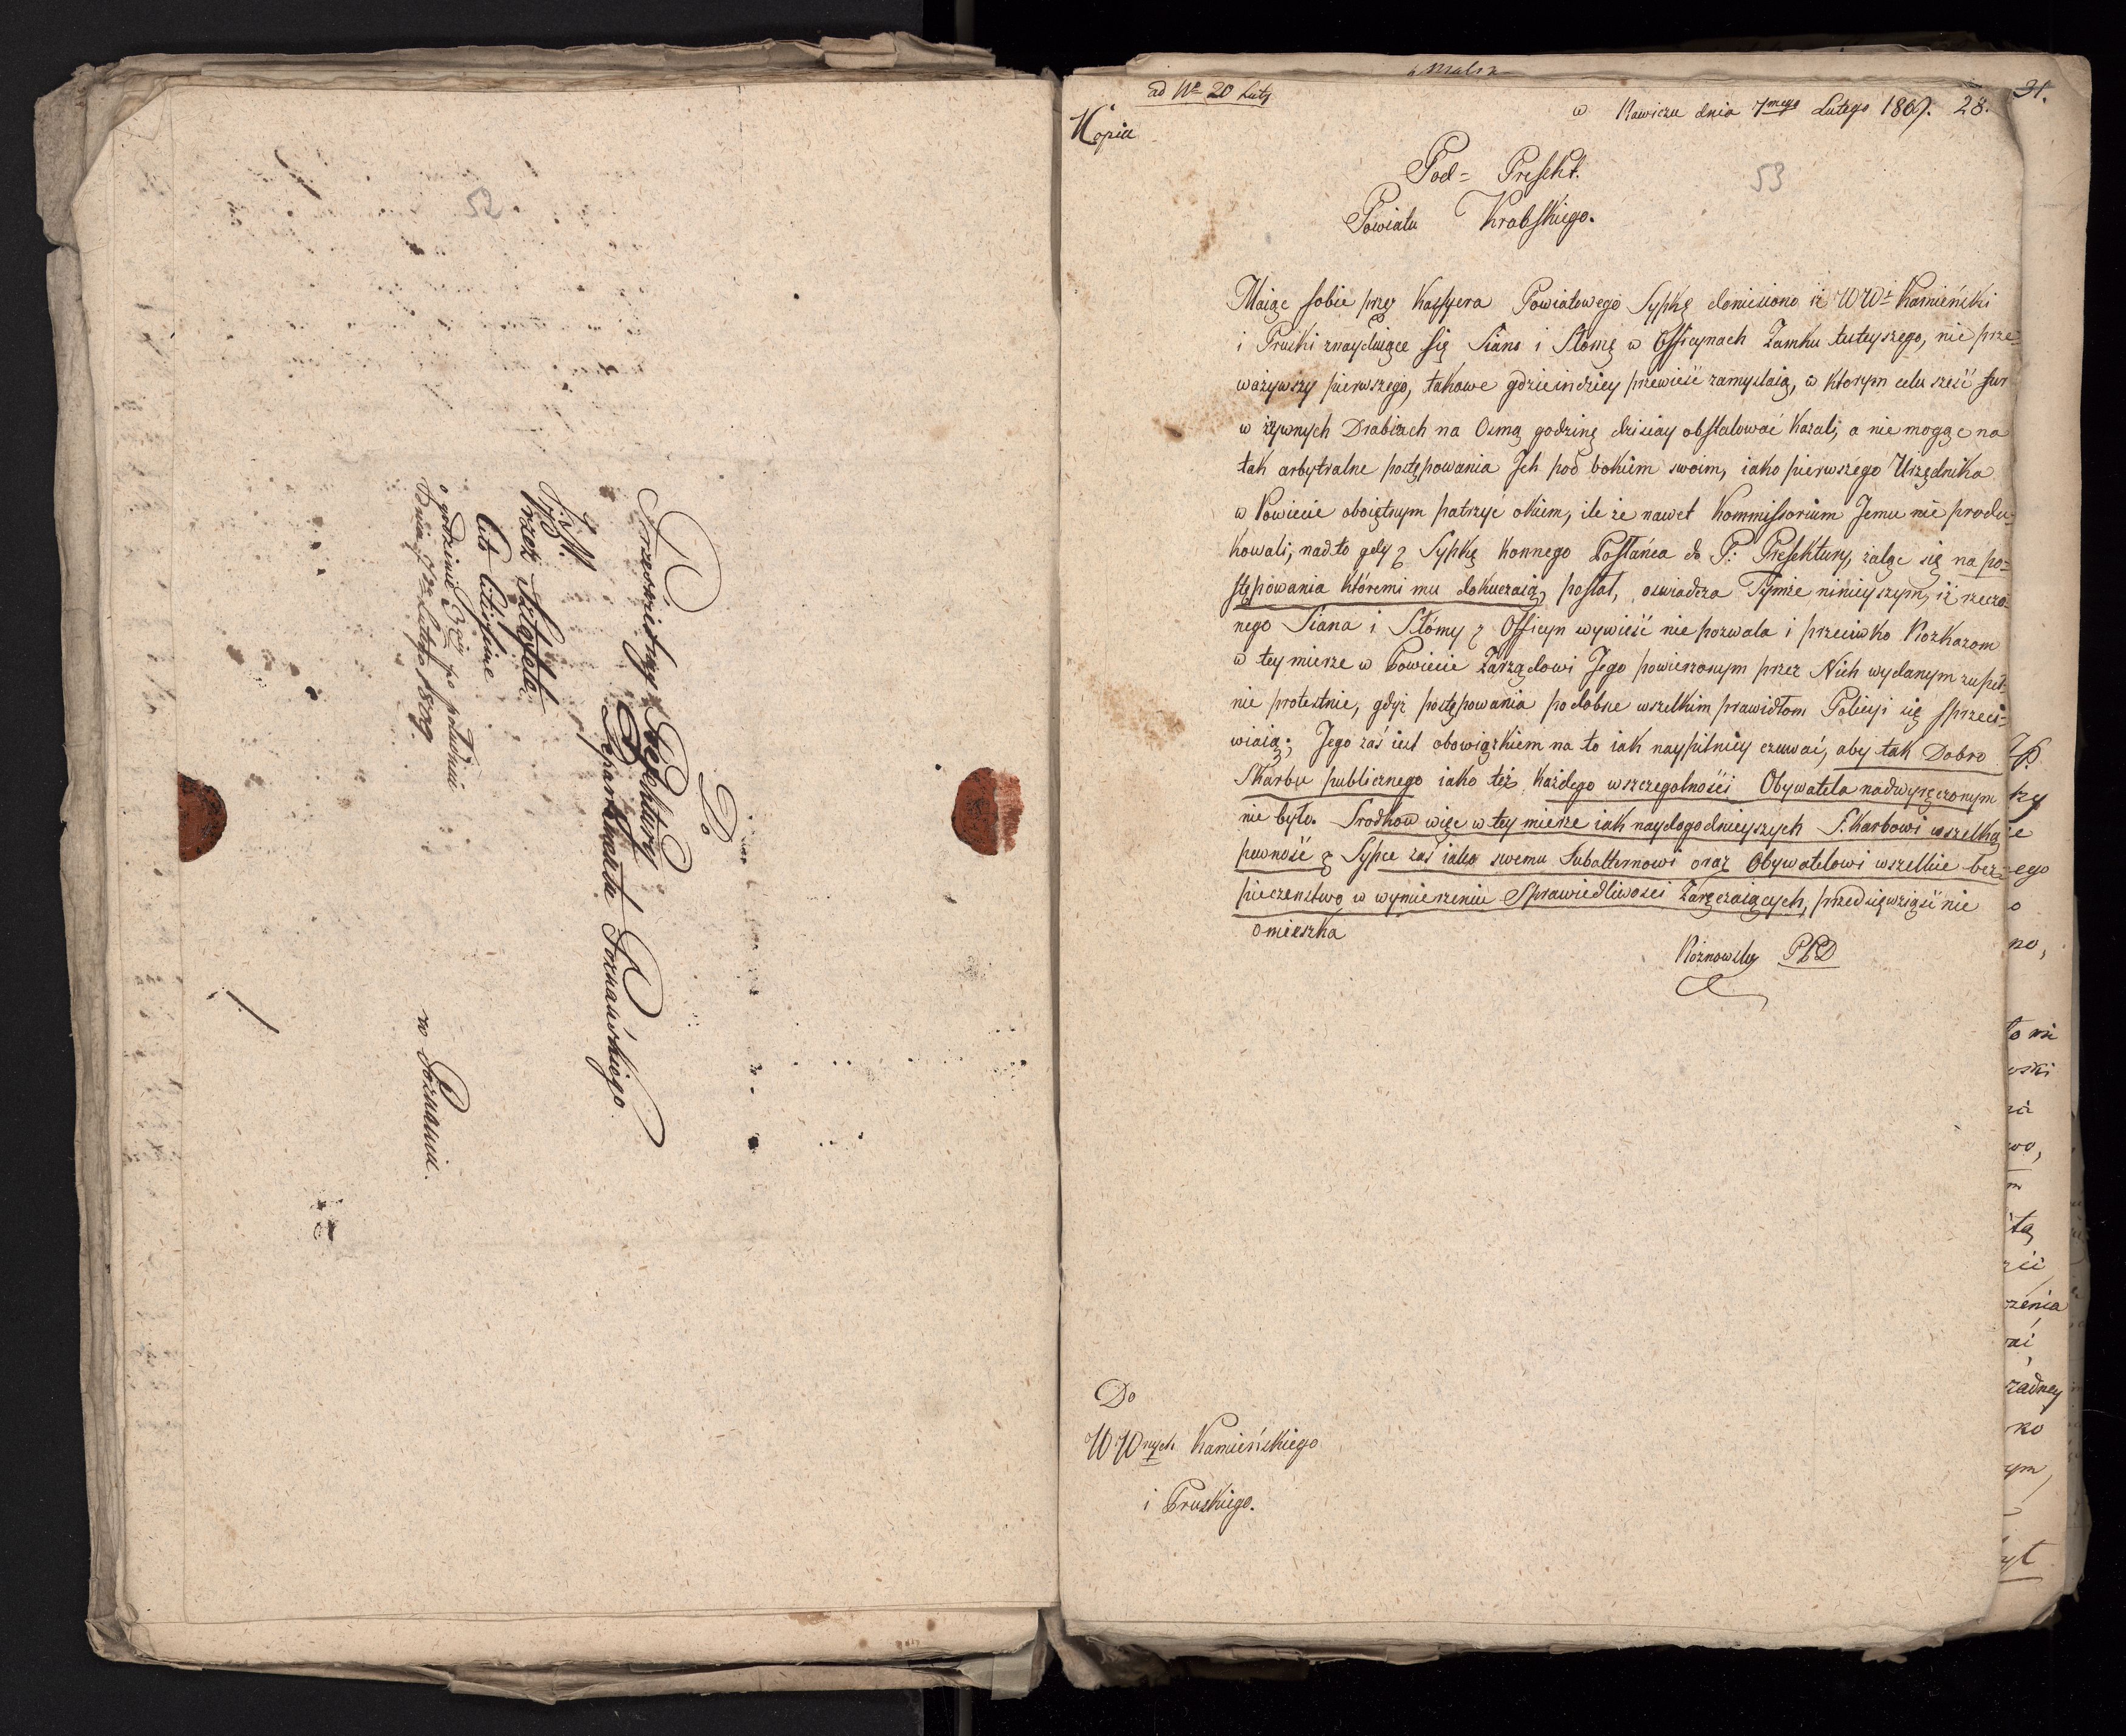 52
Do
Prześwietney Prefektury
Departamentu Poznańskiego
przez Sztafetę
cito citissime
o godzinie 3ciey po południu
Dnia 7go Lutego 1809
w Poznaniu.
ad No 20 Luty
w Rawiczu dnia 7mego Lutego 1809. 28.
31.
Kopia
53
Pod= Prefekt.
Powiatu Krobskiego.
Maiąc sobie przez Kassyera Powiatowego Sypkę doniesiono iż WWi Kamieński
i Pruski znayduiące się Siano i Słomę w Officynach Zamku tuteyszego, nie prze=
ważywszy pierwszego, takowe gdzieindziey przewieść zamyslaią, w ktorym celu sześć fur
w żywnych Drabiach na Osmą godzinę dzisiay obstalować kazali, a nie mogąc na
tak arbytralne postępowania Ich pod bokiem swoim, iako pierwszego Urzędnika
w Powiecie oboiętnym patrzyć okiem, ile że nawet Kommissorium Jemu nie produ=
kowali, nadto gdy z Sypkę konnego Posłańca do P: Prefektury, żaląc się na po=
stępowania któremi mu dokuczaią, posłał, oswiadcza Tymże ninieyszym, iż rzeczo=
nego Siana i Słómy z Officyn wywieść nie pozwala i przeciwko Rozkazom
w tey mierze w Powiecie Zarządowi Jego powierzonym przez Nich wydanym zupeł=
nie protestuie, gdyż postępowania podobne wszelkim prawidłom Policyi się sprzeci=
wiaią; Jego zaś iest obowiązkiem na to iak naypilniey czuwać, aby tak Dobro
Skarbu publicznego iako też każdego wszczegolności Obywatela nadwyręczonym
nie było. Srodkow więc w tey mierze iak naydogodnieyszych Skarbowi wszelką
pewność z Sypce zaś iako swemu Subalternowi oraz Obywatelowi wszelkie bez=
pieczenstwo w wymierzeniu Sprawiedliwości Zaręczaiących, przedsięwziąść nie
omieszka
Rożnowsky PPD
Do
WWnych Kamieńskiego
i Pruskiego.